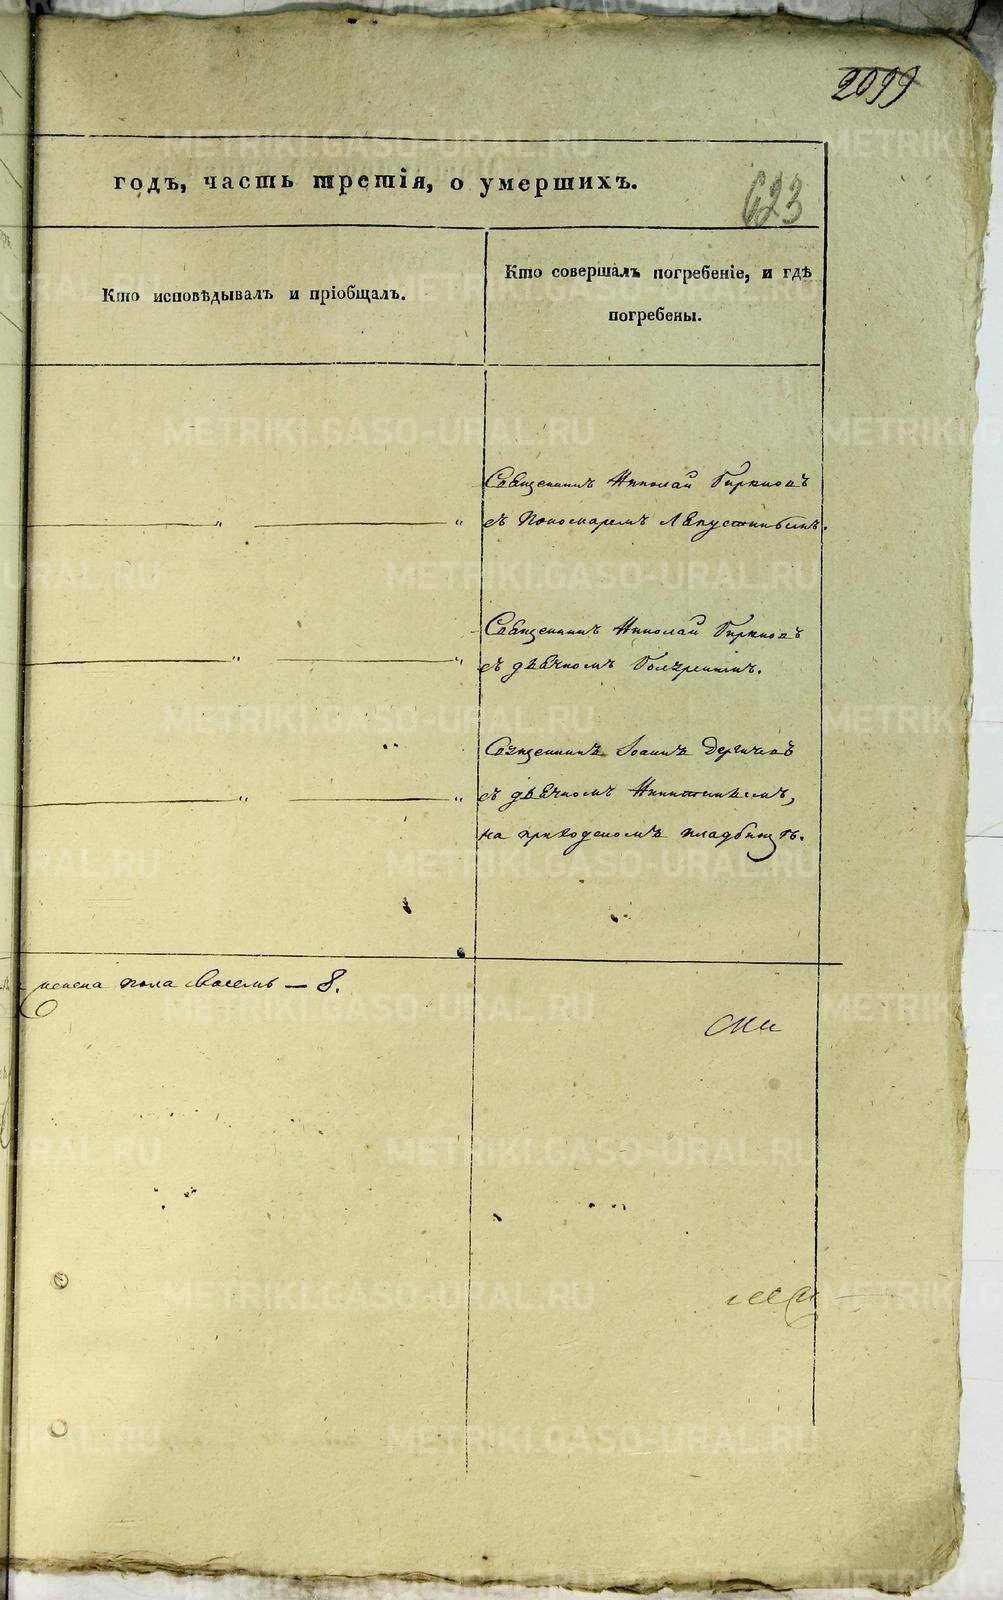 2099
годъ, часть третія, о умершихъ.
623
Кто исповѣдывалъ и пріобщалъ.
Кто совершалъ погребеніе, и гдѣ
погребены.
Священникъ Николай
съ Пономаремъ
Священникъ Николай
съ дьячкомъ
Священникъ Іоаннъ Дергачевъ
съ дьячкомъ
на приходскомъ кладбищѣ.
женска пола восемь — 8.
METRIKI.GASO-URAL.RU